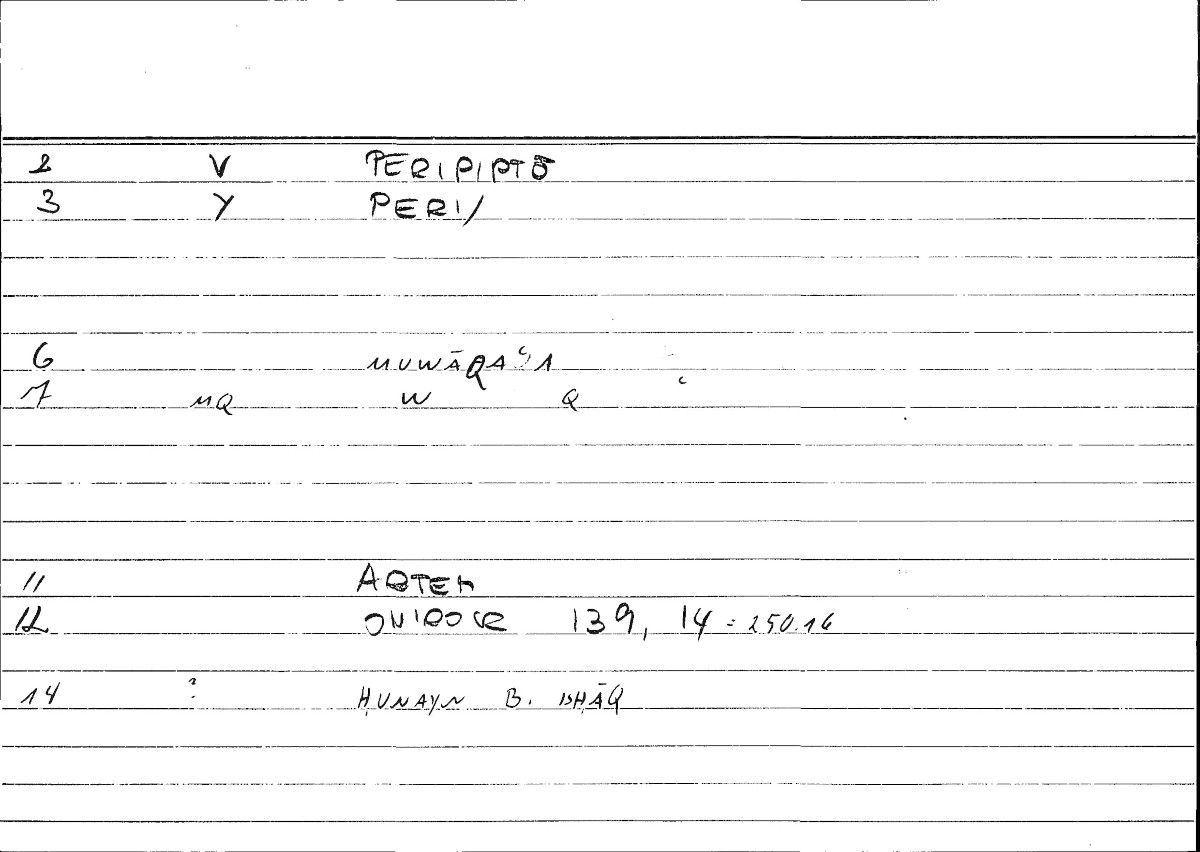 2 V PERIPIPTŌ
3 Y PERI/
6 MUWĀQAʿA
7 MQ W Q ʿ
11 ARTEM
12 ONIROCR 139, 14 = 250.16
14 : ḤUNAYN B. ISḤĀQ